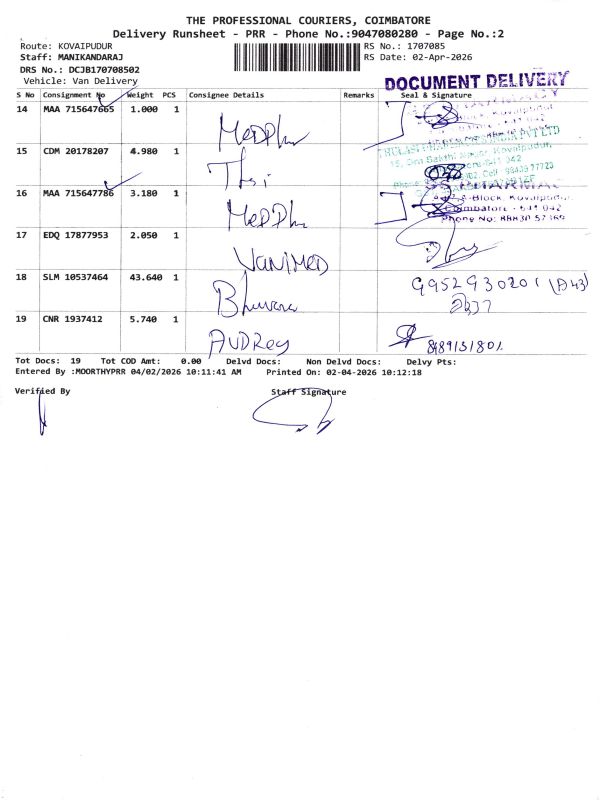 THE PROFESSIONAL COURIERS, COIMBATORE
Delivery Runsheet - PRR - Phone No.:9047080280 - Page No.:2
Route: KOVAIPUDUR
RS No.: 1707085
Staff: MANIKANDARAJ
RS Date: 02-Apr-2026
DRS No.: DCJB170708502
Vehicle: Van Delivery
DOCUMENT DELIVERY
S No Consignment No Weight PCS Consignee Details Remarks Seal & Signature
14 MAA 715647665 1.000 1
15 CDM 20178207 4.980 1
16 MAA 715647786 3.180 1 MEDPh
Block, Kovaipudur
Coimbatore - 641 042
Phone No: 88830 57169
17 EDQ 17877953 2.050 1 VANIMED
18 SLM 10537464 43.640 1 Bhuvana 9952930201 (A43)
19 CNR 1937412 5.740 1 AUDREY
Tot Docs: 19 Tot COD Amt: 0.00 Delvd Docs: Non Delvd Docs: Delvy Pts:
Entered By :MOORTHYPRR 04/02/2026 10:11:41 AM Printed On: 02-04-2026 10:12:18
Verified By Staff Signature